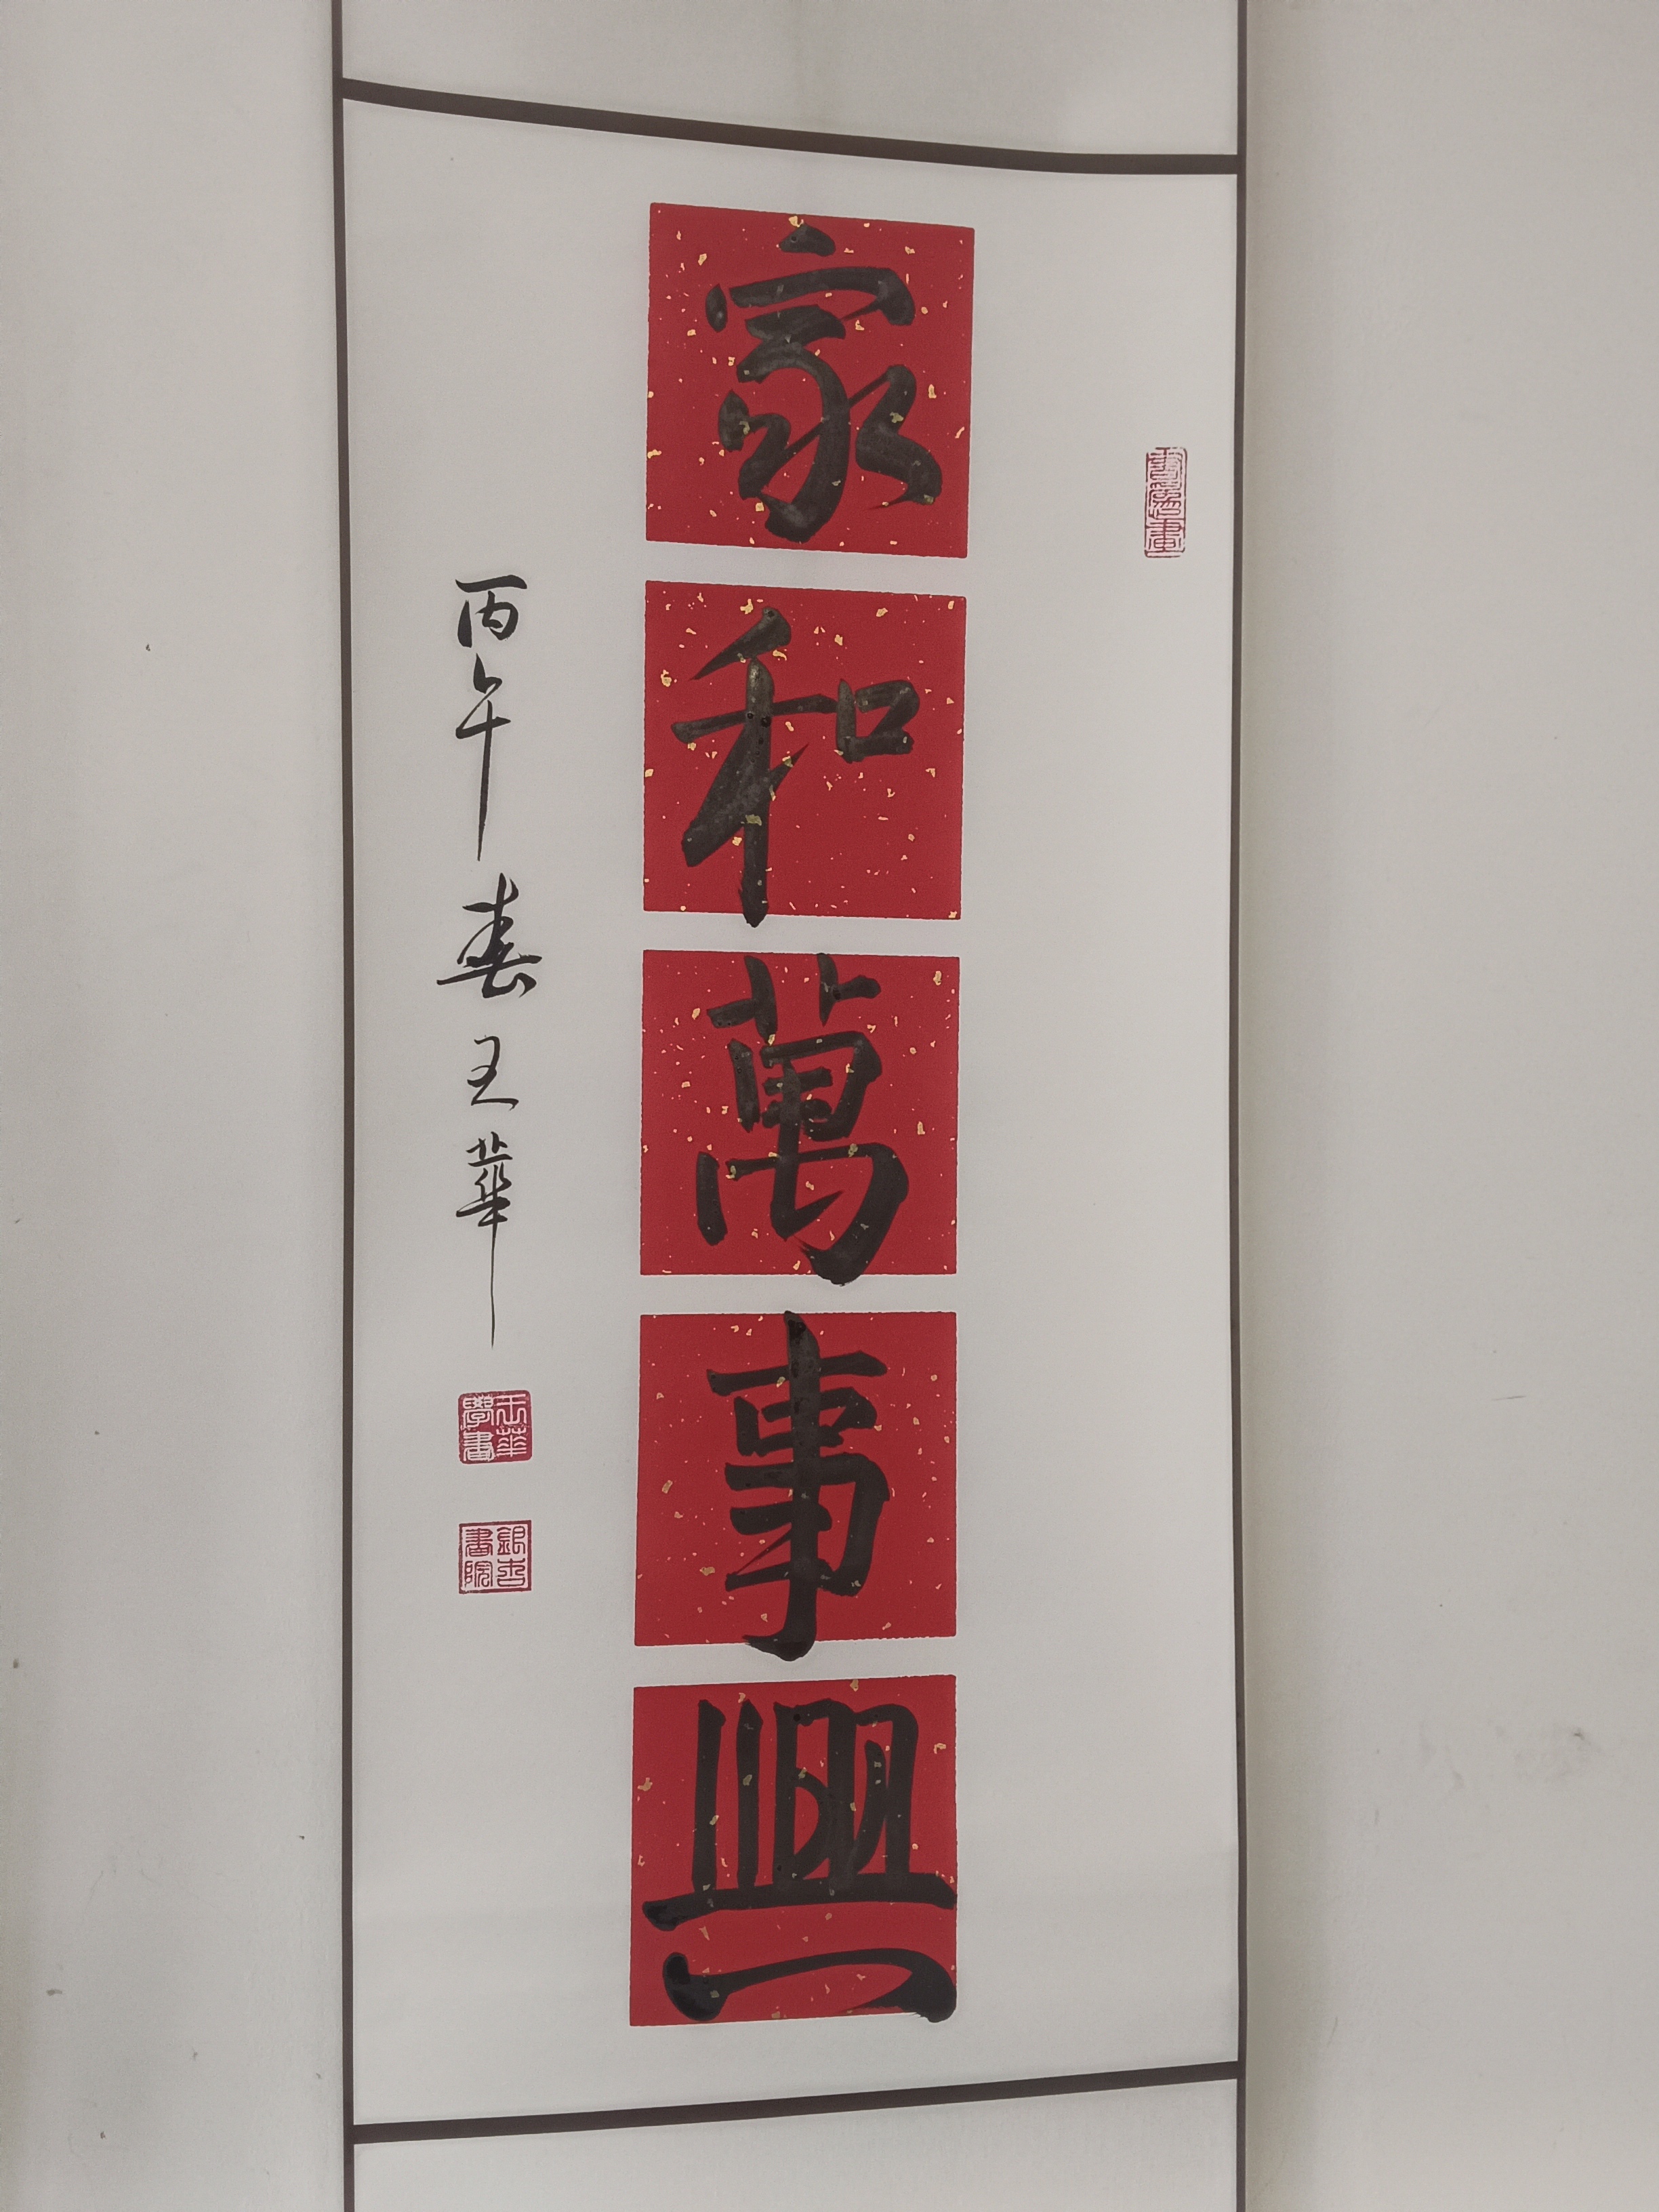 家和萬事興
丙午春 王華
王華學書
銀杏書院